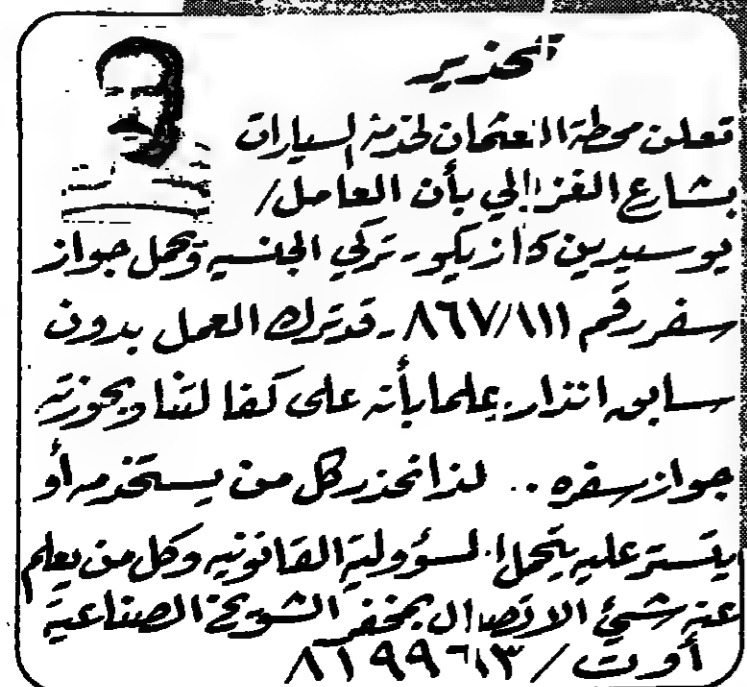 تحذير
تعلن محطة العثمان لخدمة السيارات
بشارع الغزالي بأن العامل/
يوسيدين كازيكو - تركي الجنسيه ويحمل جواز
سفر رقم ٨٦٧/١١١ - قد ترك العمل بدون
سابق انذار، علما بأنه على كفالتنا وبحوزته
جواز سفره .. لذا نحذر كل من يستخدمه أو
يتستر عليه يتحمل المسؤولية القانونيه وكل من يعلم
عنه شيئ الاتصال بمخفر الشويخ الصناعية
أو ت / ٨١٩٩٦١٣